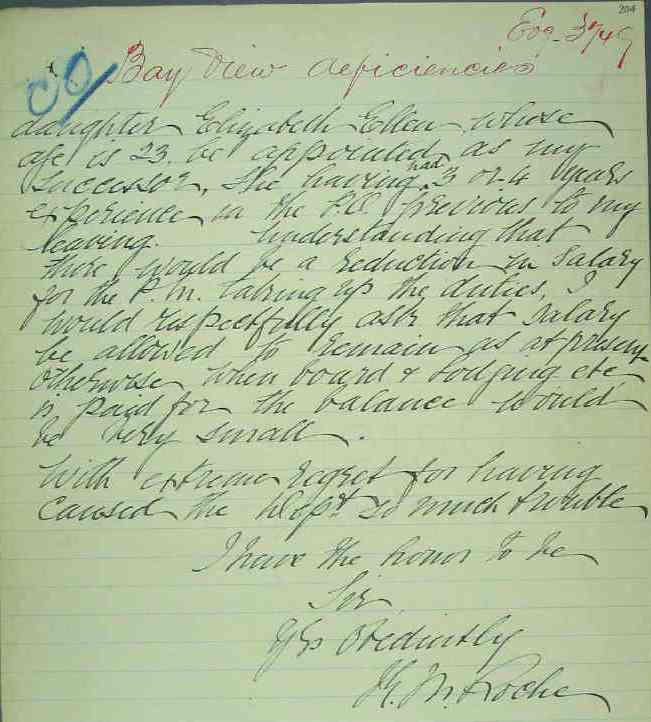 204
Bay View deficiencies
daughter Elizabeth Ellen whose
age is 23. be appointed as my
successor, she having had 3 or 4 years
experience in the P.O. previous to my
leaving. Understanding that
there would be a reduction in salary
for the P.M. taking up the duties, I
would respectfully ask that salary
be allowed to remain as at present
otherwise when board & lodging etc
is paid for the balance would
be very small.
With extreme regret for having
caused the Dept so much trouble
I have the honor to be
Sir
Yrs Obediently
M. Roche